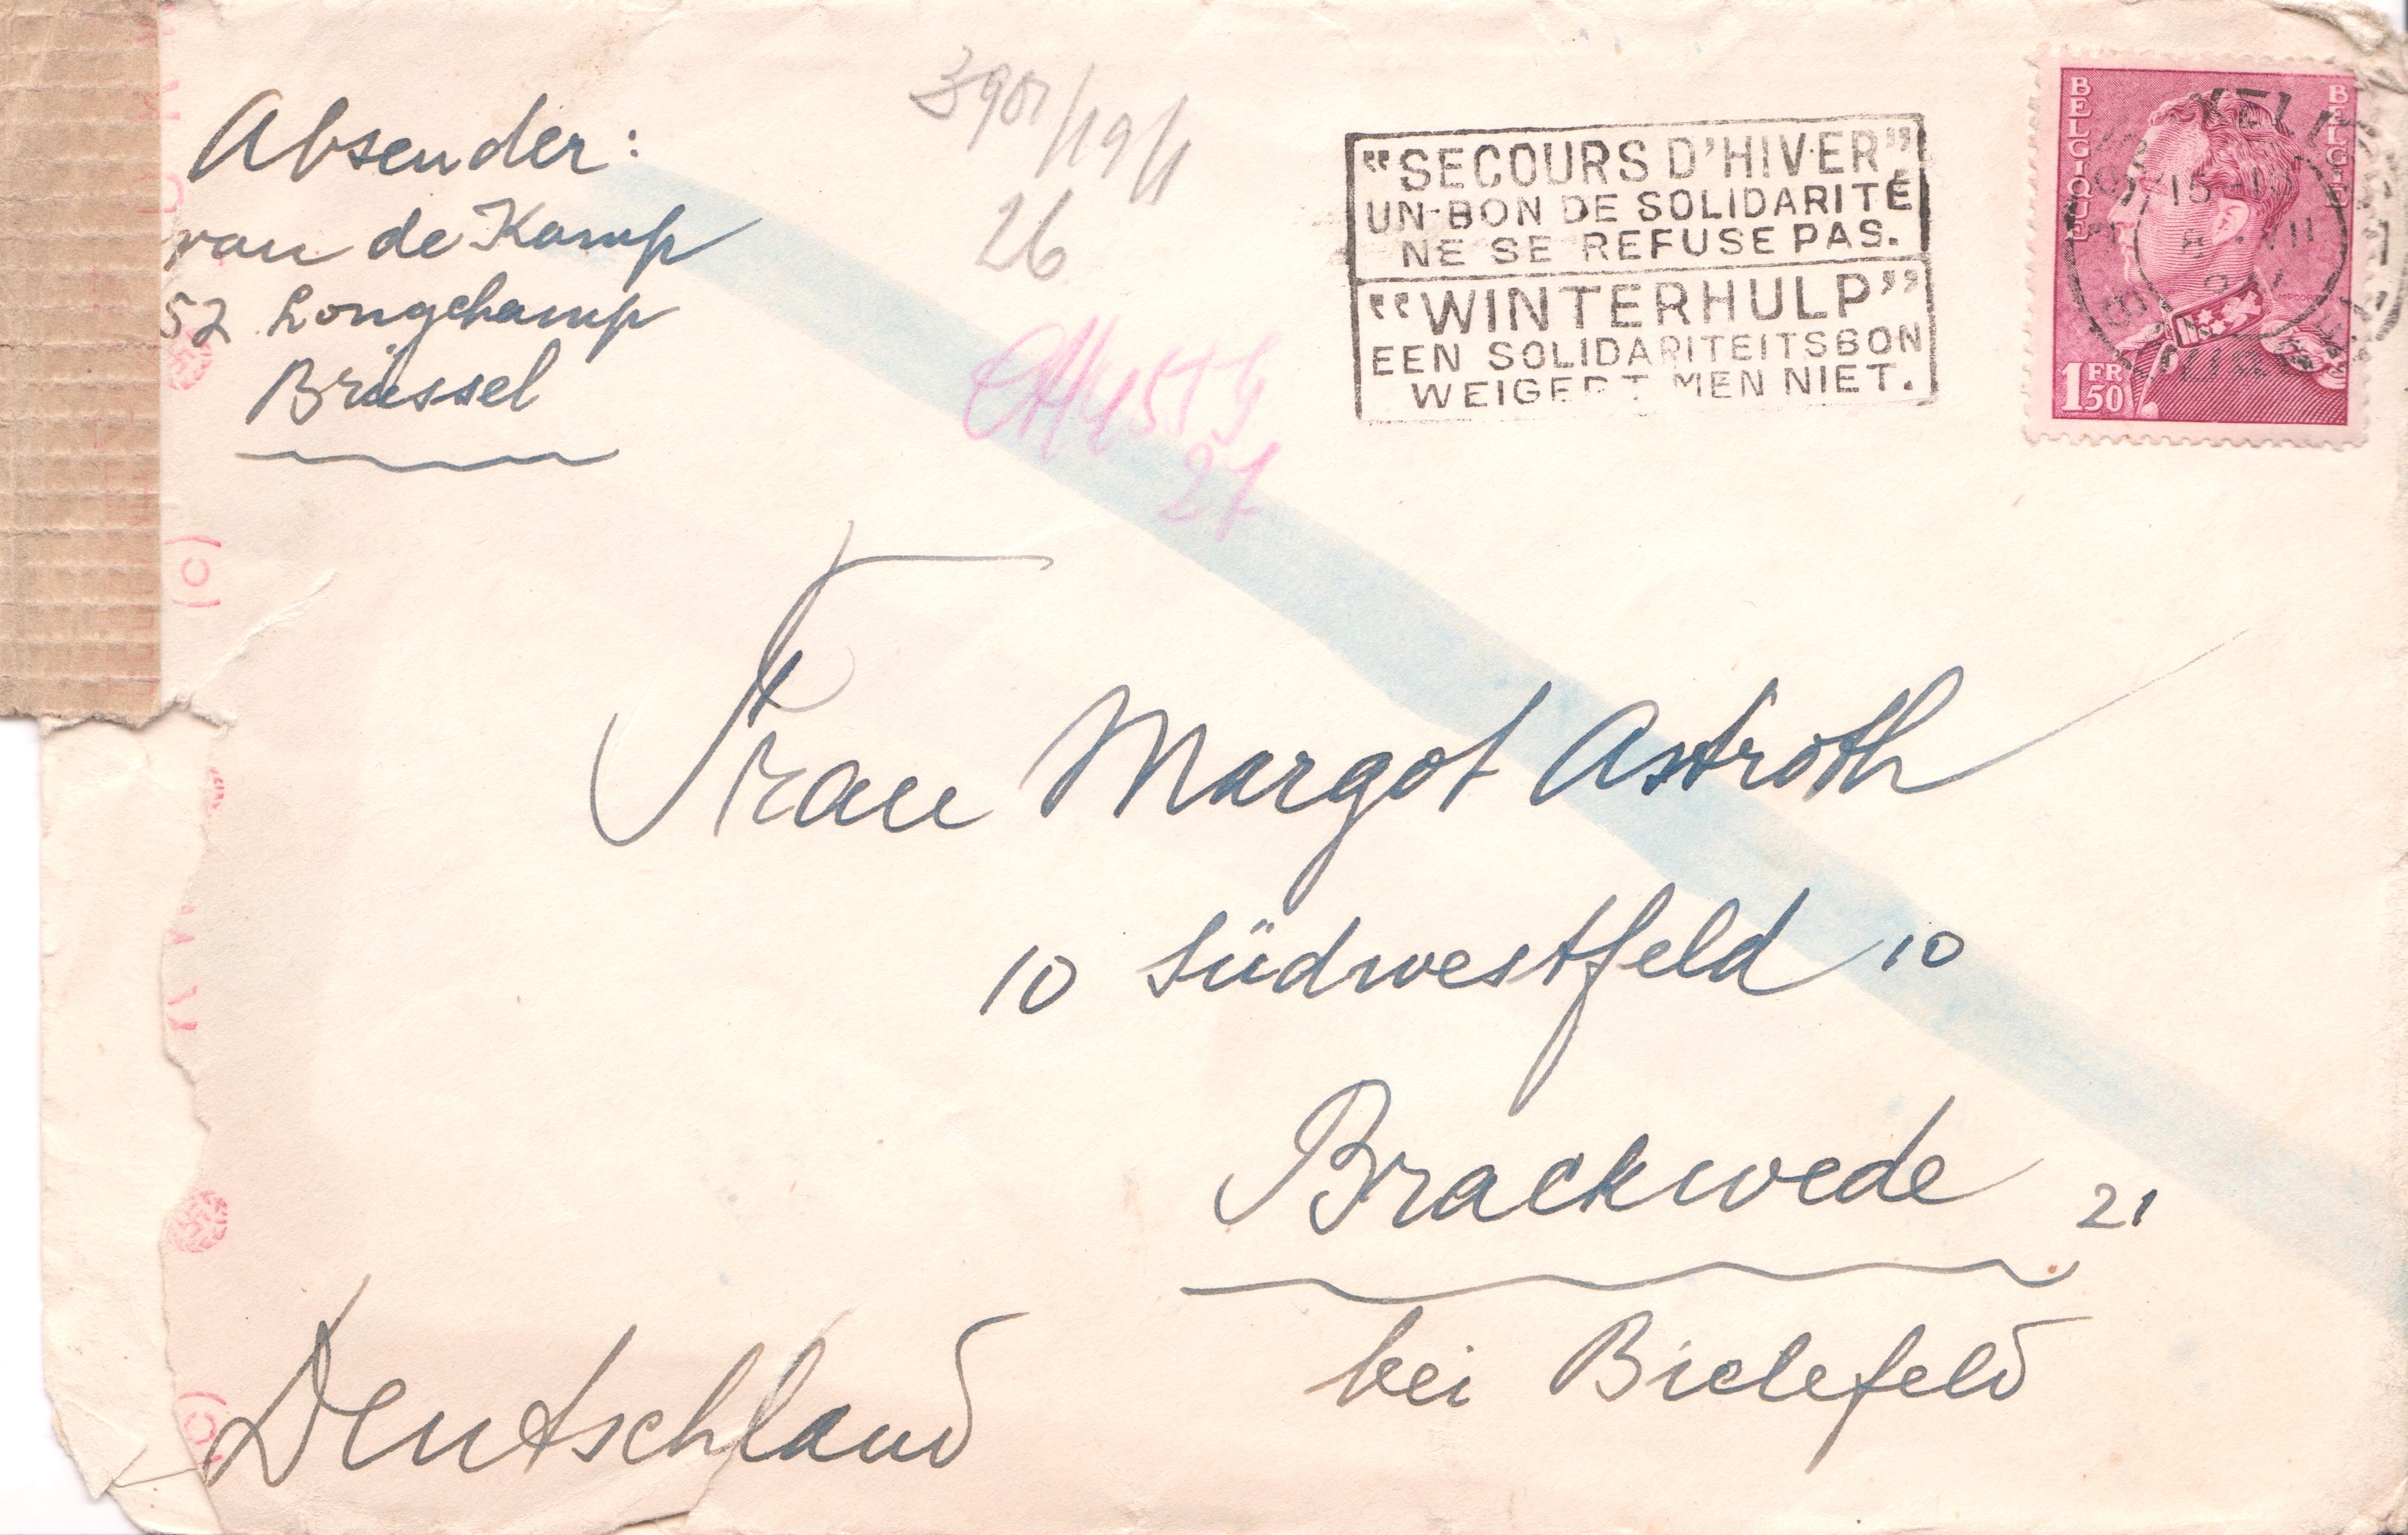 Absender:
van de Kamp
52 Longchamp
Brüssel
26
"SECOURS D'HIVER"
UN BON DE SOLIDARITÉ
NE SE REFUSE PAS.
"WINTERHULP"
EEN SOLIDARITEITSBON
WEIGERT MEN NIET.
BELGIQUE
BELGIE
1 FR 50
27
(C)
Frau Margot Astroth
10 Südwestfeld 10
Brackwede 21
bei Bielefeld
Deutschland